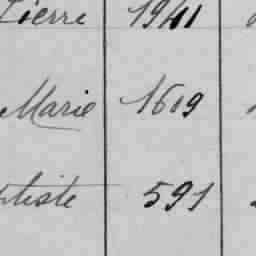 Pierre 1941
Marie 1609
ptiste 591